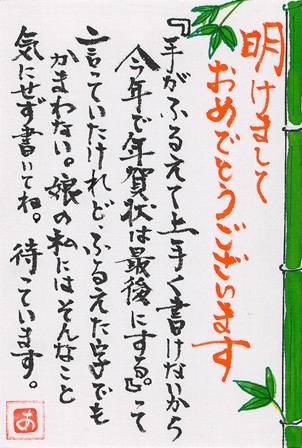 明けまして
おめでとうございます
『手がふるえて上手く書けないから
今年で年賀状は最後にする』って
言っていたけれど、ふるえた字でも
かまわない。娘の私にはそんなこと
気にせず書いてね。待っています。
あ